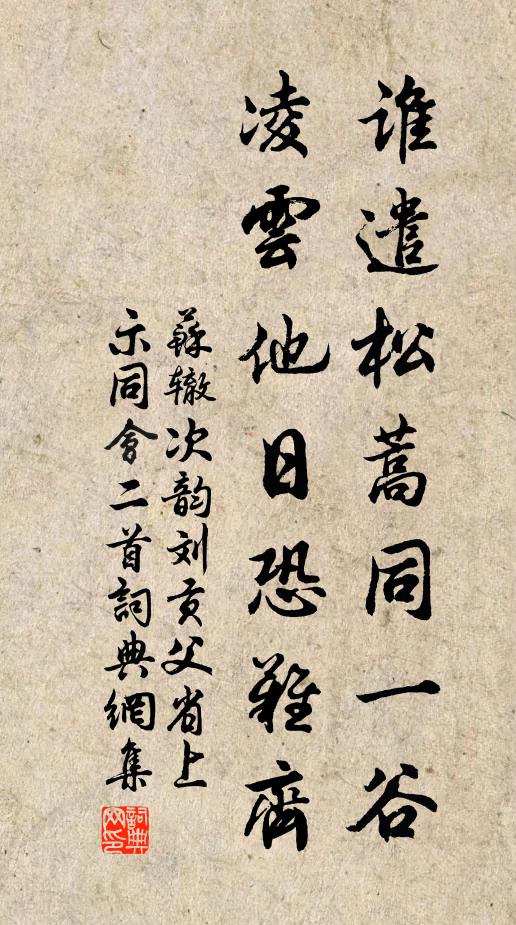 谁遣松蒿同一谷
凌雲他日恐難齊
蘇辙次韵刘贡父省上
示同會二首詞典網集
詞典
网印